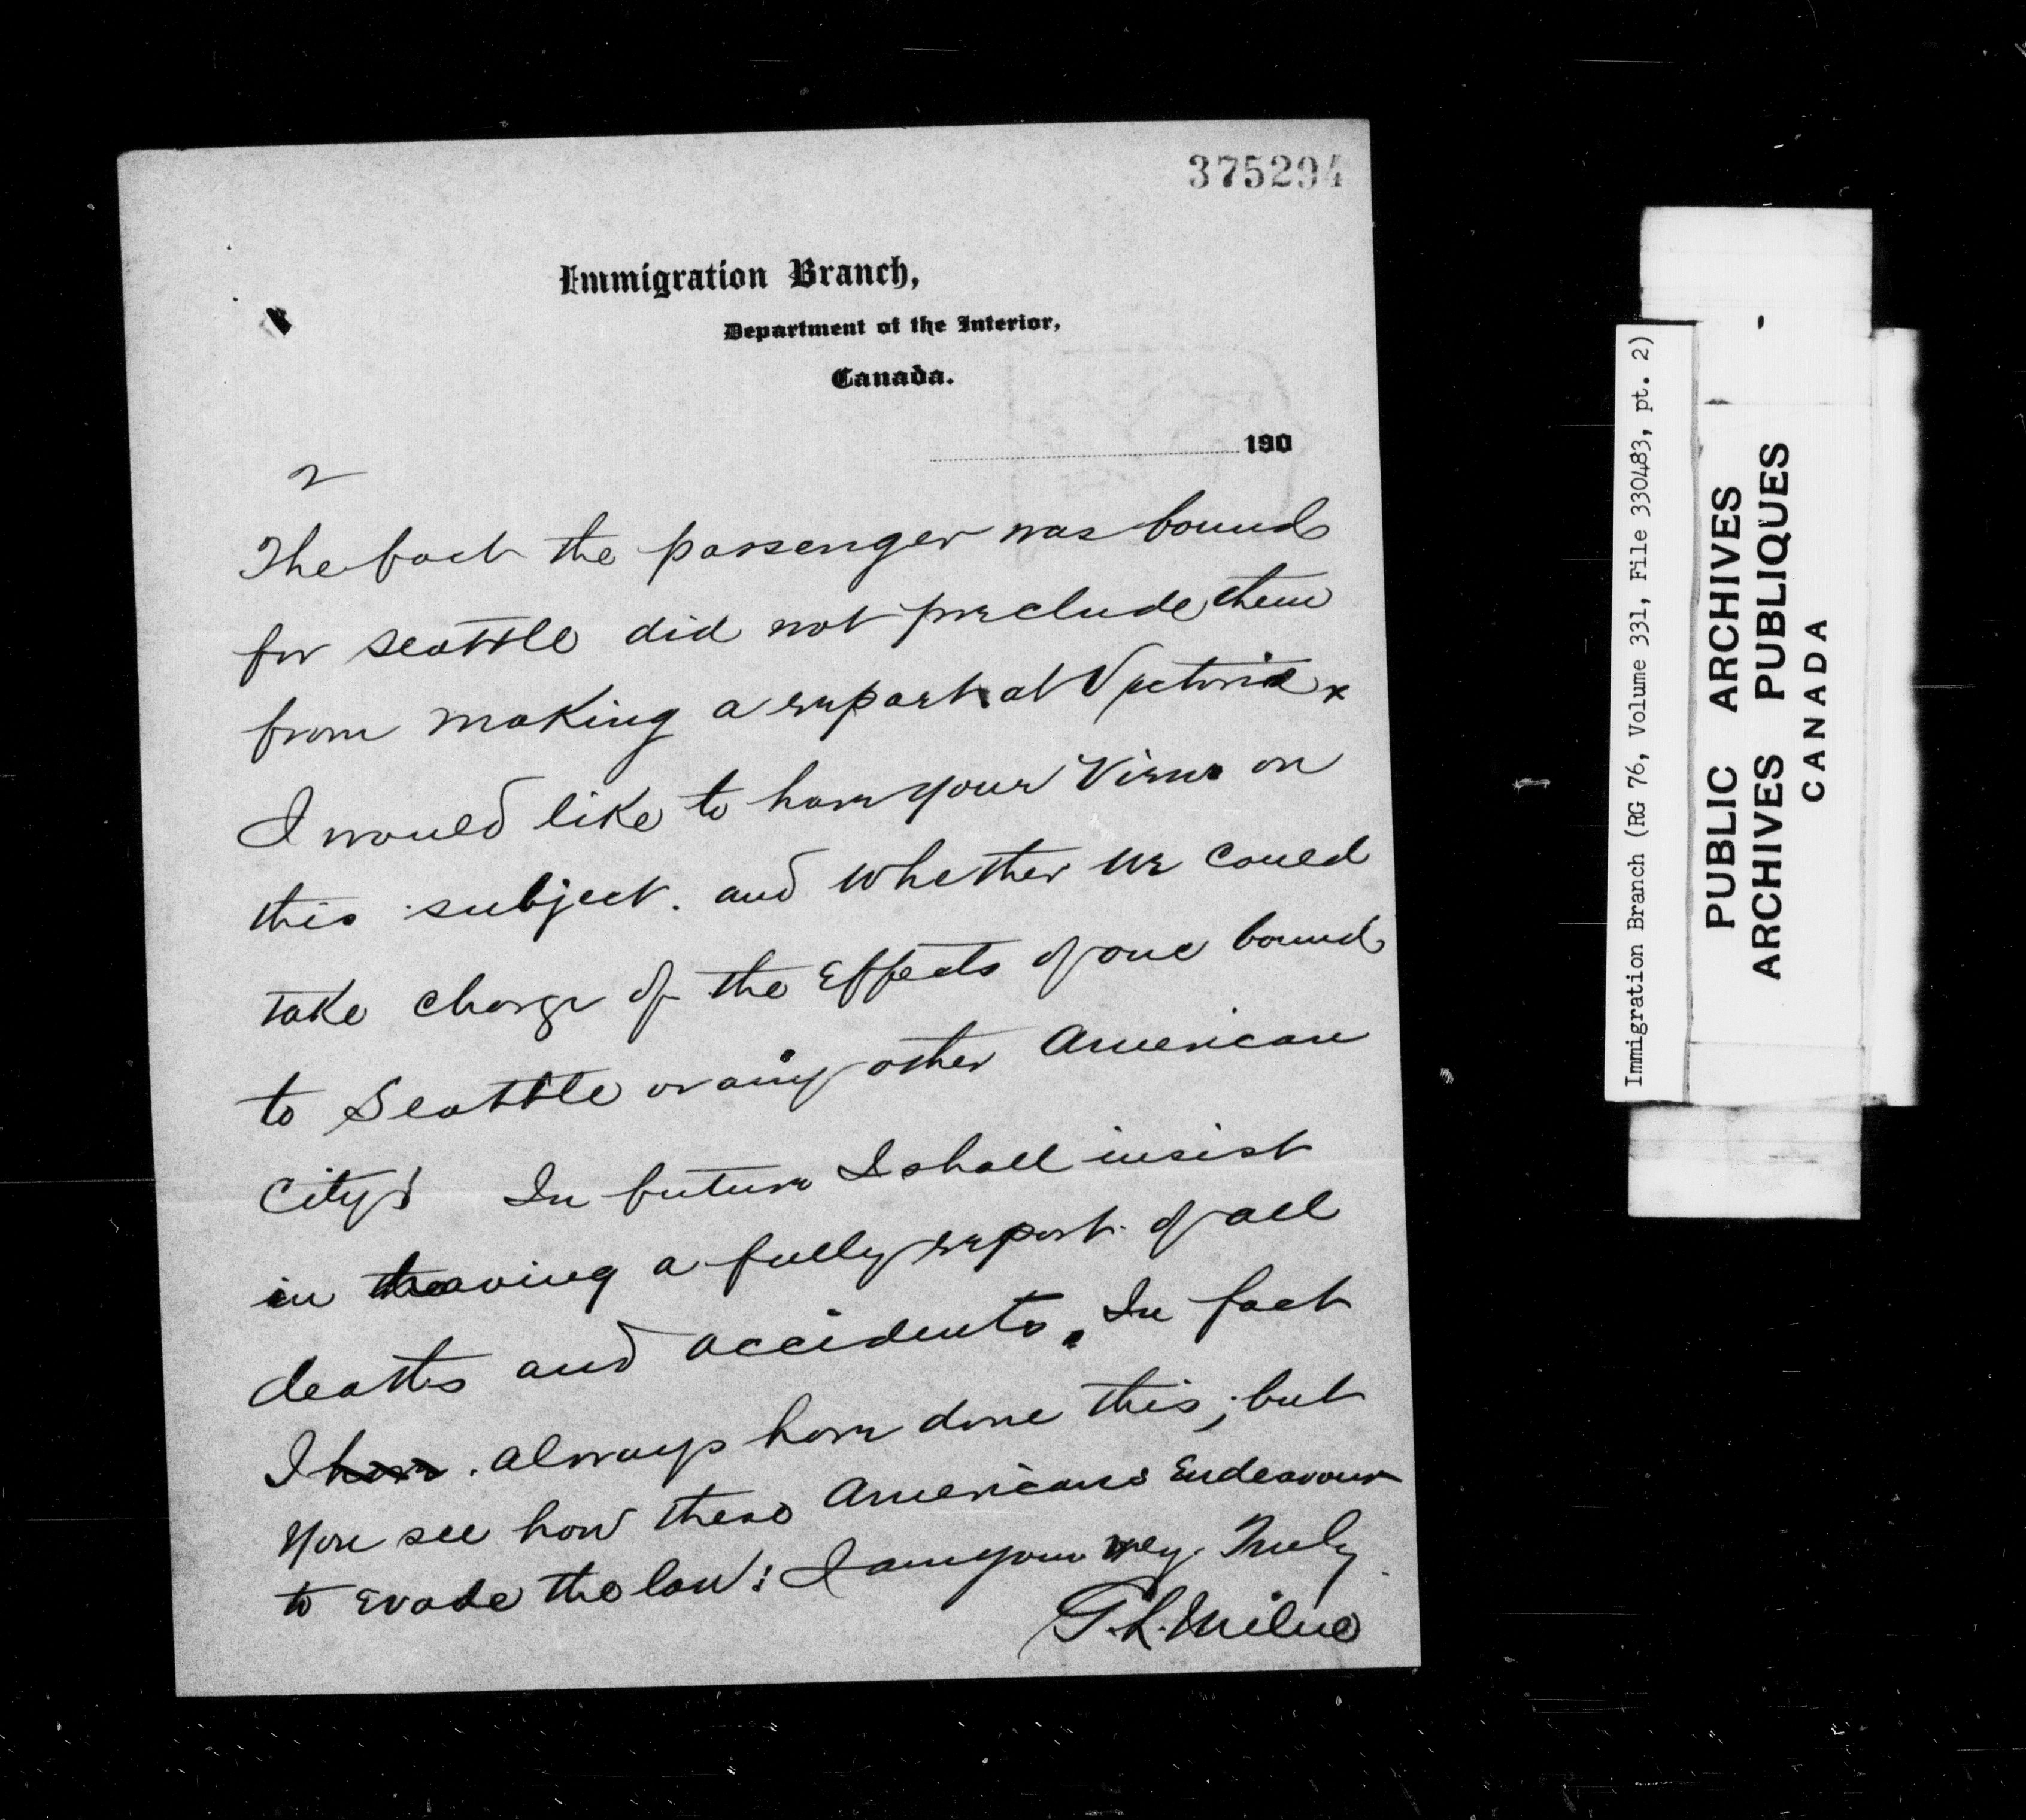 375294
Immigration Branch,
Department of the Interior,
Canada.
190
2
The fact the passenger was bound
for Seattle did not preclude them
from making a report at Victoria x
I would like to have your views on
this subject. and whether we could
take charge of the Effects of one bound
to Seattle or any other American
City? In future I shall insist
in having a fully report of all
deaths and accidents. In fact
I have. always have done this; but
you see how these Americans Endeavour
to Evade the law: I am your very Truly
G.L. Milne
Immigration Branch (RG 76, Volume 331, File 330483, pt. 2)
PUBLIC ARCHIVES
ARCHIVES PUBLIQUES
CANADA